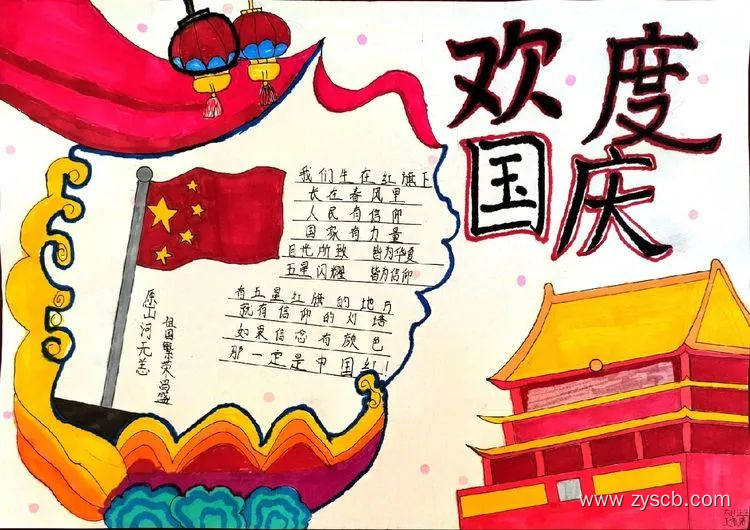 欢度
国庆
我们生在红旗下
长在春风里
人民有信仰
国家有力量
目光所致 皆为华夏
五星闪耀 皆为信仰
有五星红旗的地方
就有信仰的灯塔
如果信念有颜色
那一定是中国红!
愿山河无恙
祖国繁荣昌盛
www.zyscb.com